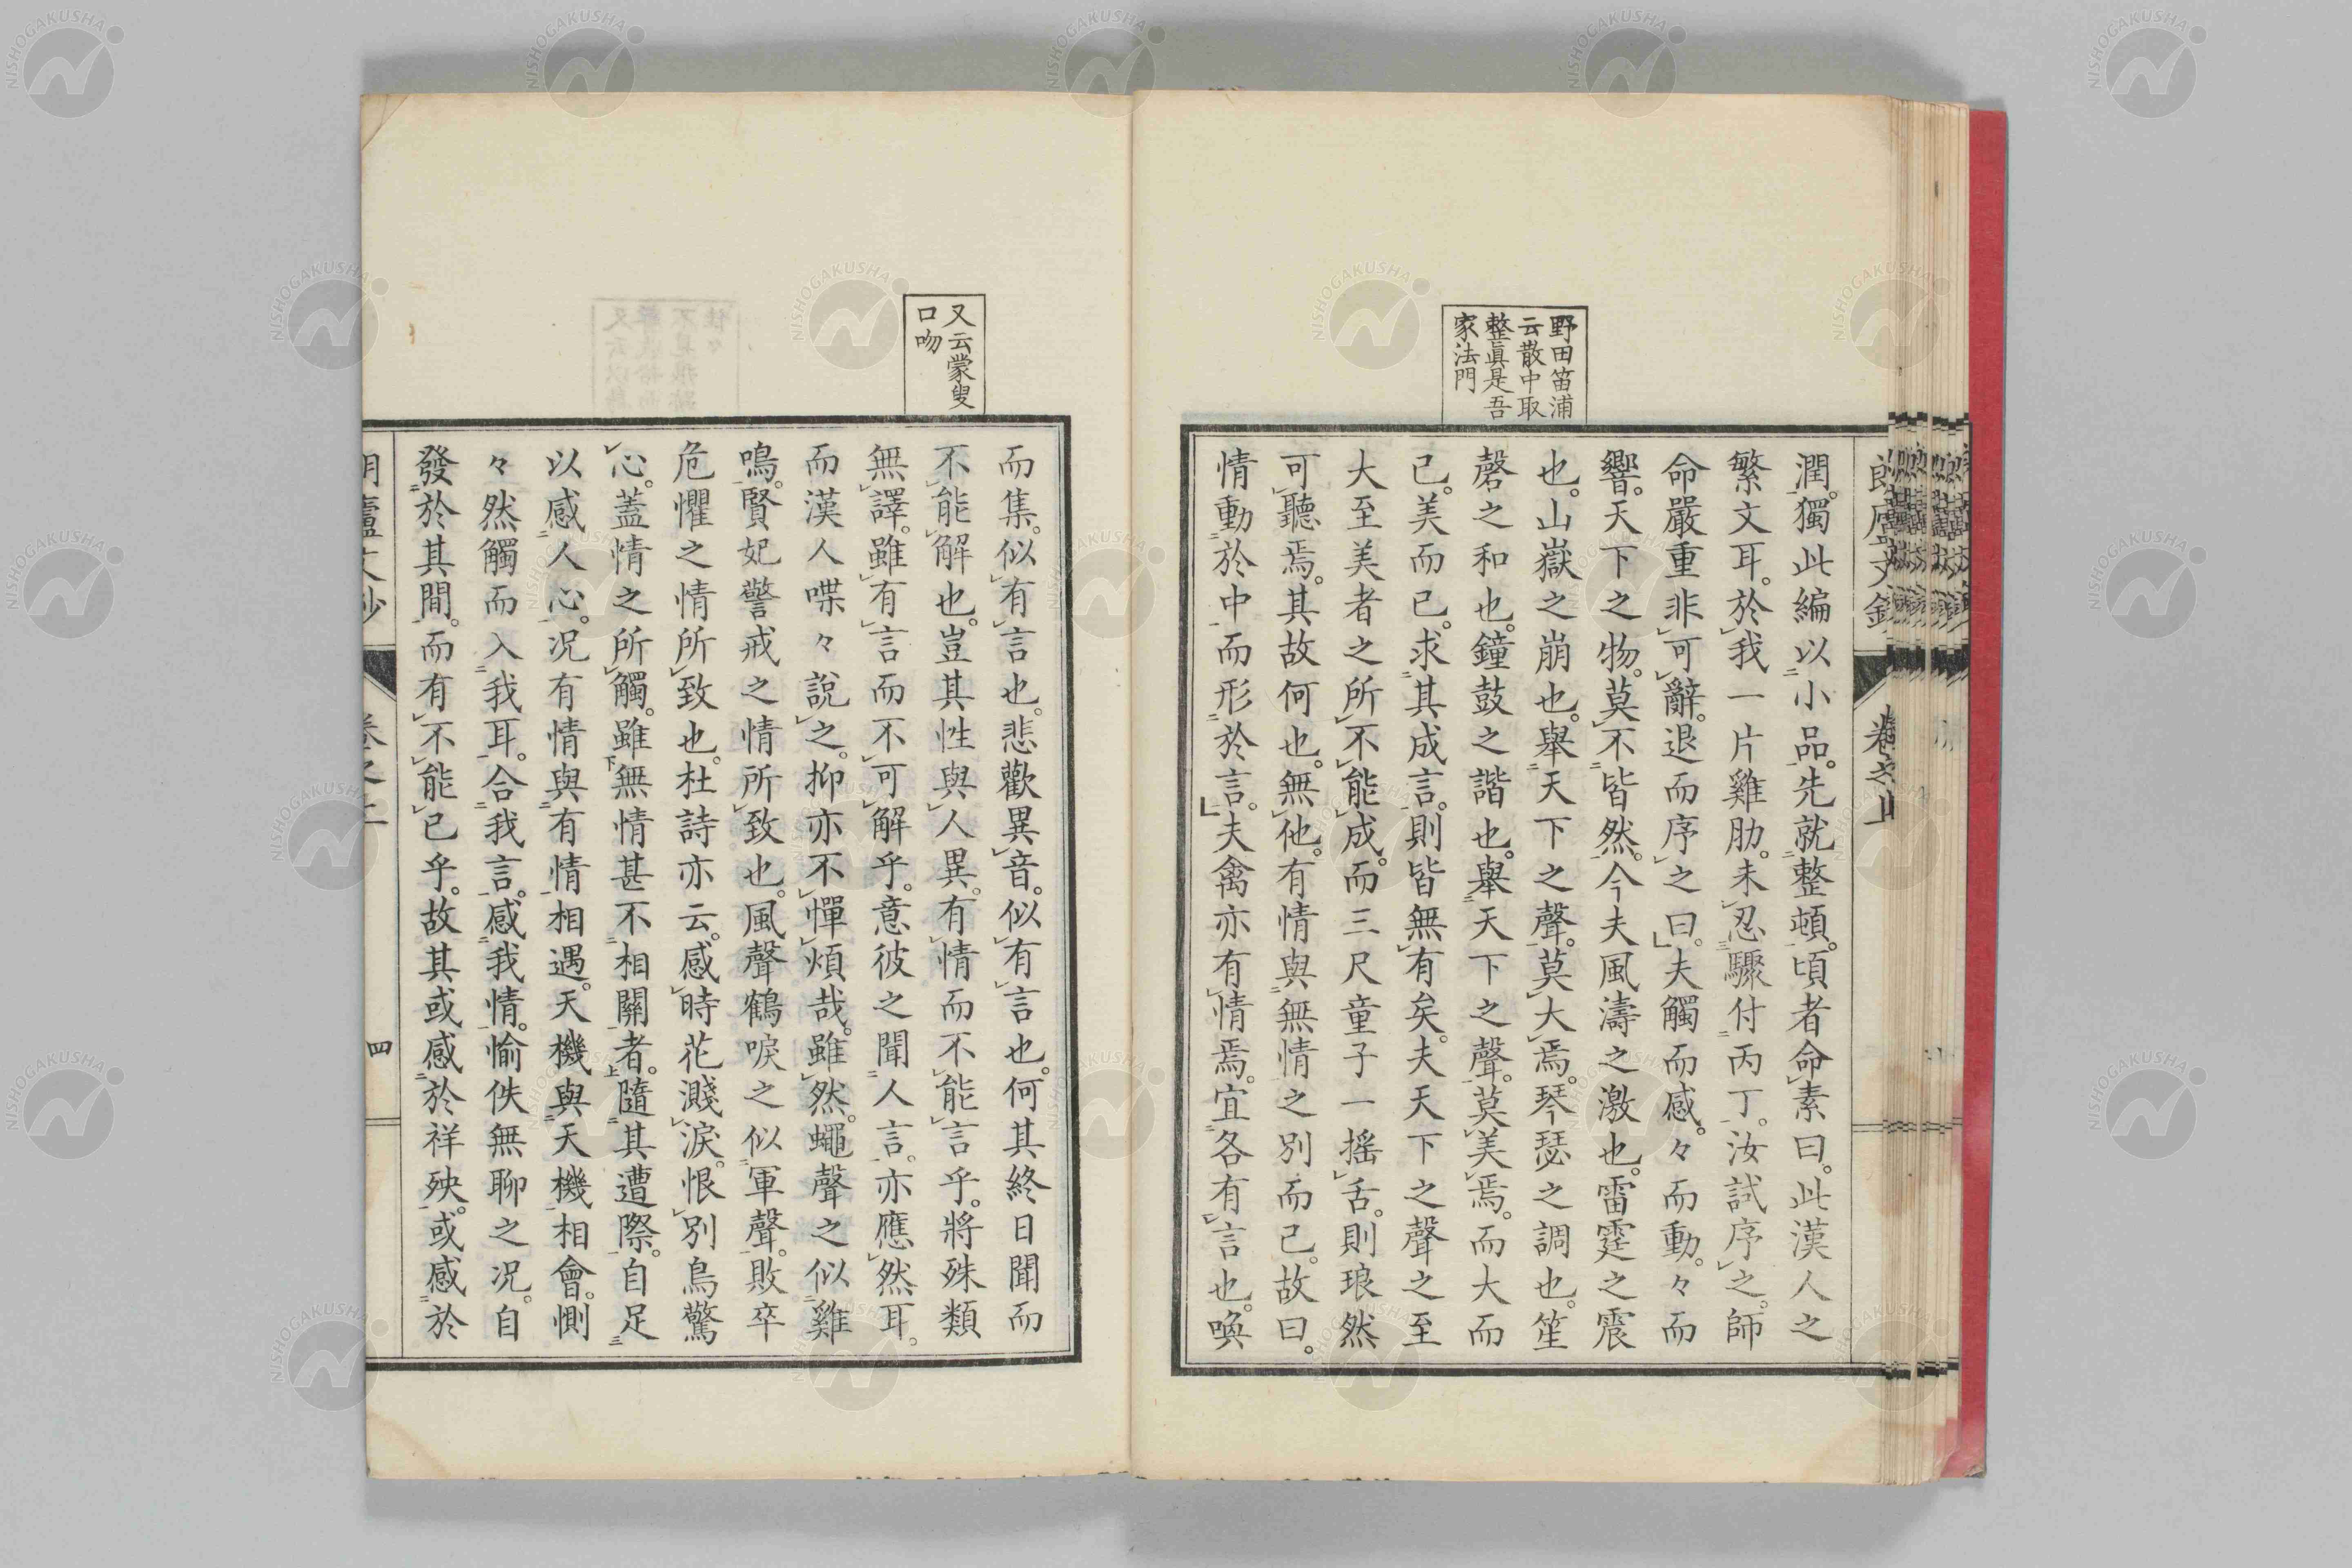 野田笛浦
云散中取
整眞是吾
家法門
潤。獨此編以小品。先就整頓。頃者命素曰。此漢人之
繁文耳。於我一片雞肋。未忍驟付丙丁。汝試序之。師
命嚴重非可辭。退而序之曰。夫觸而感。々而動。々而
響。天下之物。莫不皆然。今夫風濤之激也。雷霆之震
也。山嶽之崩也。舉天下之聲。莫大焉。琴瑟之調也。笙
磬之和也。鐘鼓之諧也。舉天下之聲。莫美焉。而大而
已。美而已。求其成言。則皆無有矣。夫天下之聲之至
大至美者之所不能成。而三尺童子一搖舌。則琅然
可聽焉。其故何也。無他。有情與無情之別而已。故曰。
情動於中而形於言。夫禽亦有情焉。宜各有言也。喚
又云蒙叟
口吻
而集。似有言也。悲歡異音。似有言也。何其終日聞而
不能解也。豈其性與人異。有情而不能言乎。將殊類
無譯。雖有言而不可解乎。意彼之聞人言。亦應然耳。
而漢人喋々說之。抑亦不憚煩哉。雖然。蠅聲之似雞
鳴。賢妃警戒之情所致也。風聲鶴唳之似軍聲。敗卒
危懼之情所致也。杜詩亦云。感時花濺淚。恨別鳥驚
心。蓋情之所觸。雖無情甚不相關者。隨其遭際。自足
以感人心。況有情與有情相遇。天機與天機相會。惻
々然觸而入我耳。合我言。感我情。愉佚無聊之況。自
發於其間。而有不能已乎。故其或感於祥殃。或感於
四